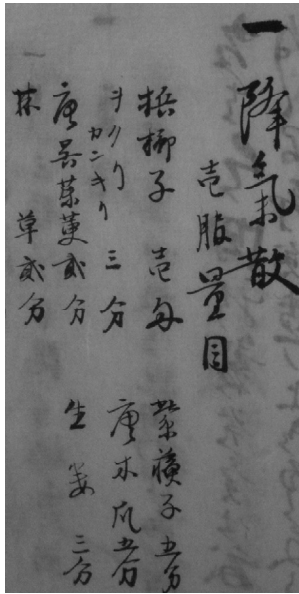 一 降氣散
壱服量目
梹榔子 壱匁 紫蘓子 五分
ヲクリカンキリ 三分 唐木瓜 五分
唐呉茱萸 弐分 生姜 三分
草 弐分